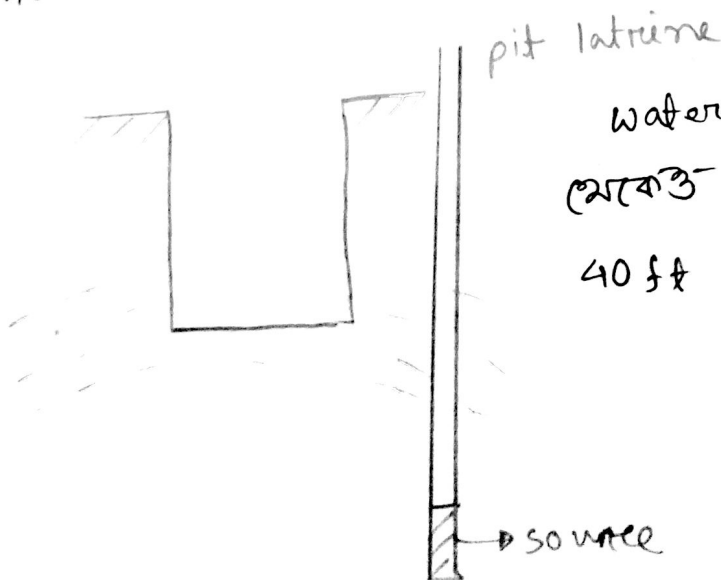 pit latrine
water
থেকেও
40 ft
source